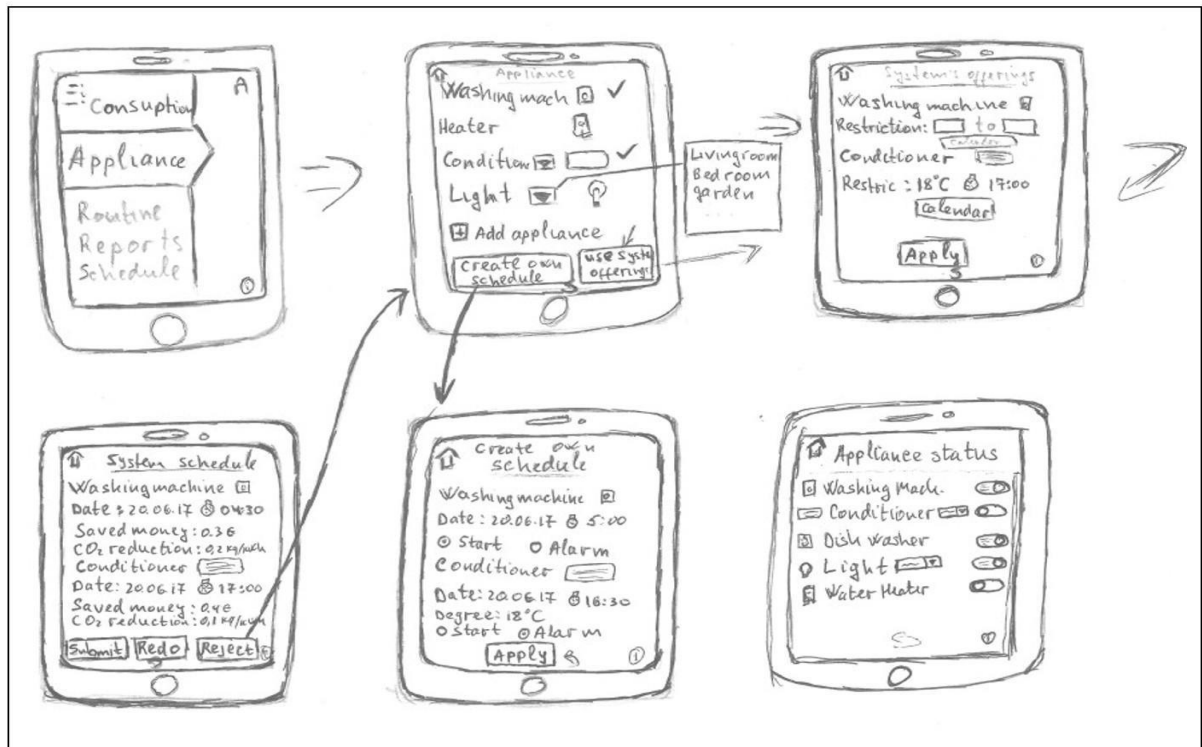 Consuption
A
Appliance
Routine
Reports
Schedule
Appliance
Washing mach
Heater
Condition
Light
Add appliance
Create own
schedule
use syste
offering
Livingroom
Bedroom
garden
System's offerings
Washing machine
Restriction: to
Calendar
Conditioner
Restric : 18°C 17:00
Calendar
Apply
System schedule
Washing machine
Date : 20.06.17 04:30
Saved money : 0.3€
CO₂ reduction : 0,2 kg/kWh
Conditioner
Date: 20.06.17 17:00
Saved money : 0.4€
CO₂ reduction : 0,1 kg/kWh
Submit Redo Reject
Create own
schedule
Washing machine
Date: 20.06.17 5:00
Start Alarm
Conditioner
Date: 20.06.17 16:30
Degree: 18°C
Start Alarm
Apply
Appliance status
Washing Mach.
Conditioner
Dish washer
Light
Water Heater